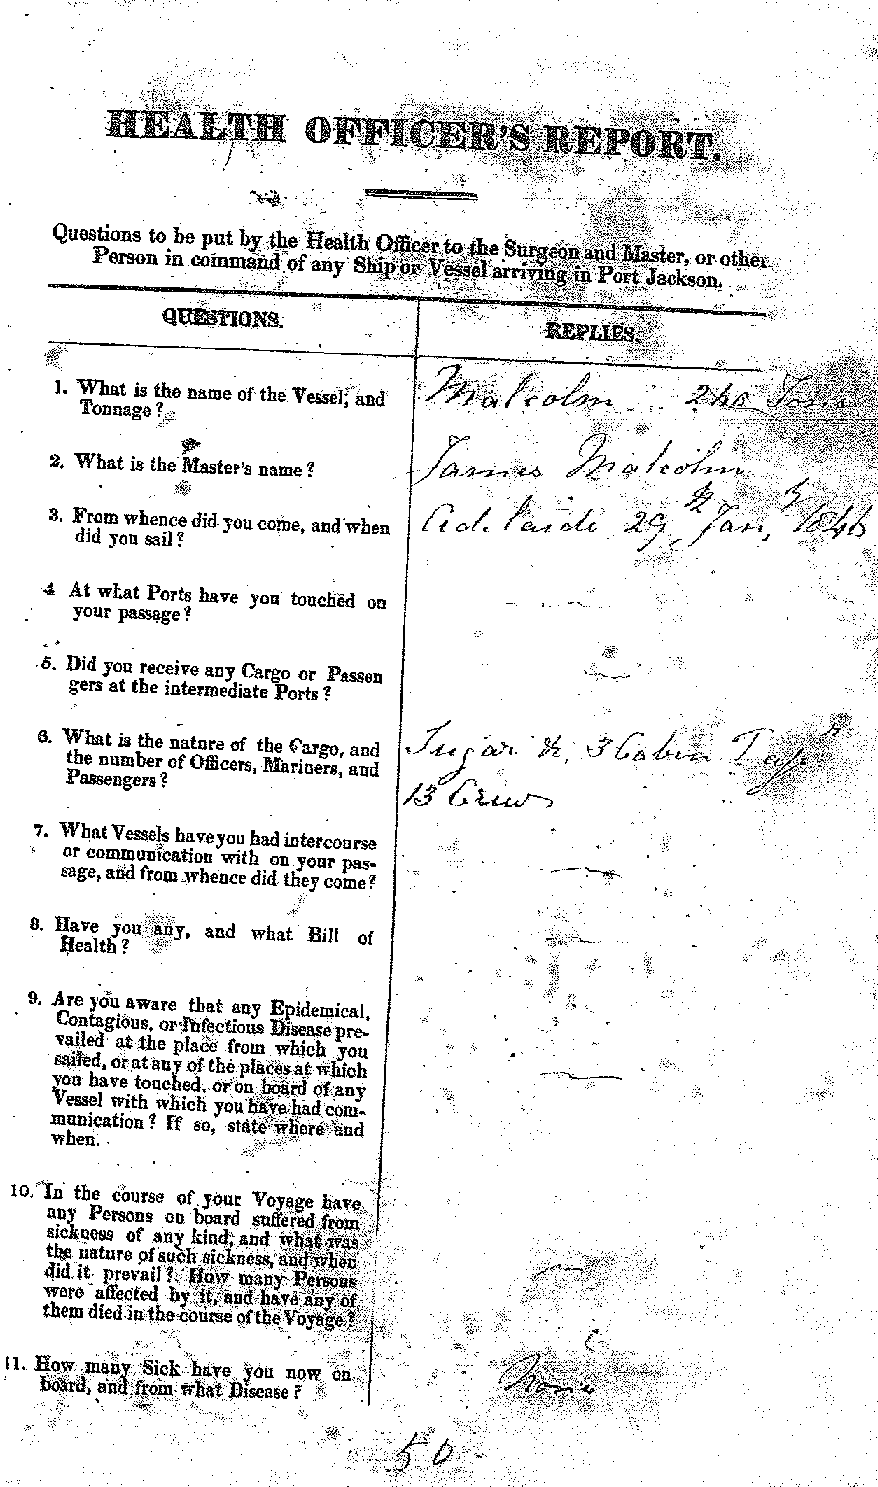 HEALTH OFFICER'S REPORT.
Questions to be put by the Health Officer to the Surgeon and Master, or other
Person in command of any Ship or Vessel arriving in Port Jackson.
QUESTIONS.
REPLIES.
1. What is the name of the Vessel, and
Tonnage?
Malcolm 240 Tons
2. What is the Master's name?
James Malcolm
3. From whence did you come, and when
did you sail?
Adelaide 29 Jan, 1846
4 At what Ports have you touched on
your passage?
5. Did you receive any Cargo or Passen
gers at the intermediate Ports?
6. What is the nature of the Cargo, and
the number of Officers, Mariners, and
Passengers?
Sugar &c, 3 Cabin
13 Crew
7. What Vessels have you had intercourse
or communication with on your pas-
sage, and from whence did they come?
8. Have you any, and what Bill of
Health?
9. Are you aware that any Epidemical,
Contagious, or Infectious Disease pre-
vailed at the place from which you
sailed, or at any of the places at which
you have touched, or on board of any
Vessel with which you have had com-
munication? If so, state where and
when.
10. In the course of your Voyage have
any Persons on board suffered from
sickness of any kind; and what was
the nature of such sickness, and when
did it prevail? How many Persons
were affected by it, and have any of
them died in the course of the Voyage?
11. How many Sick have you now on
board, and from what Disease?
None
50